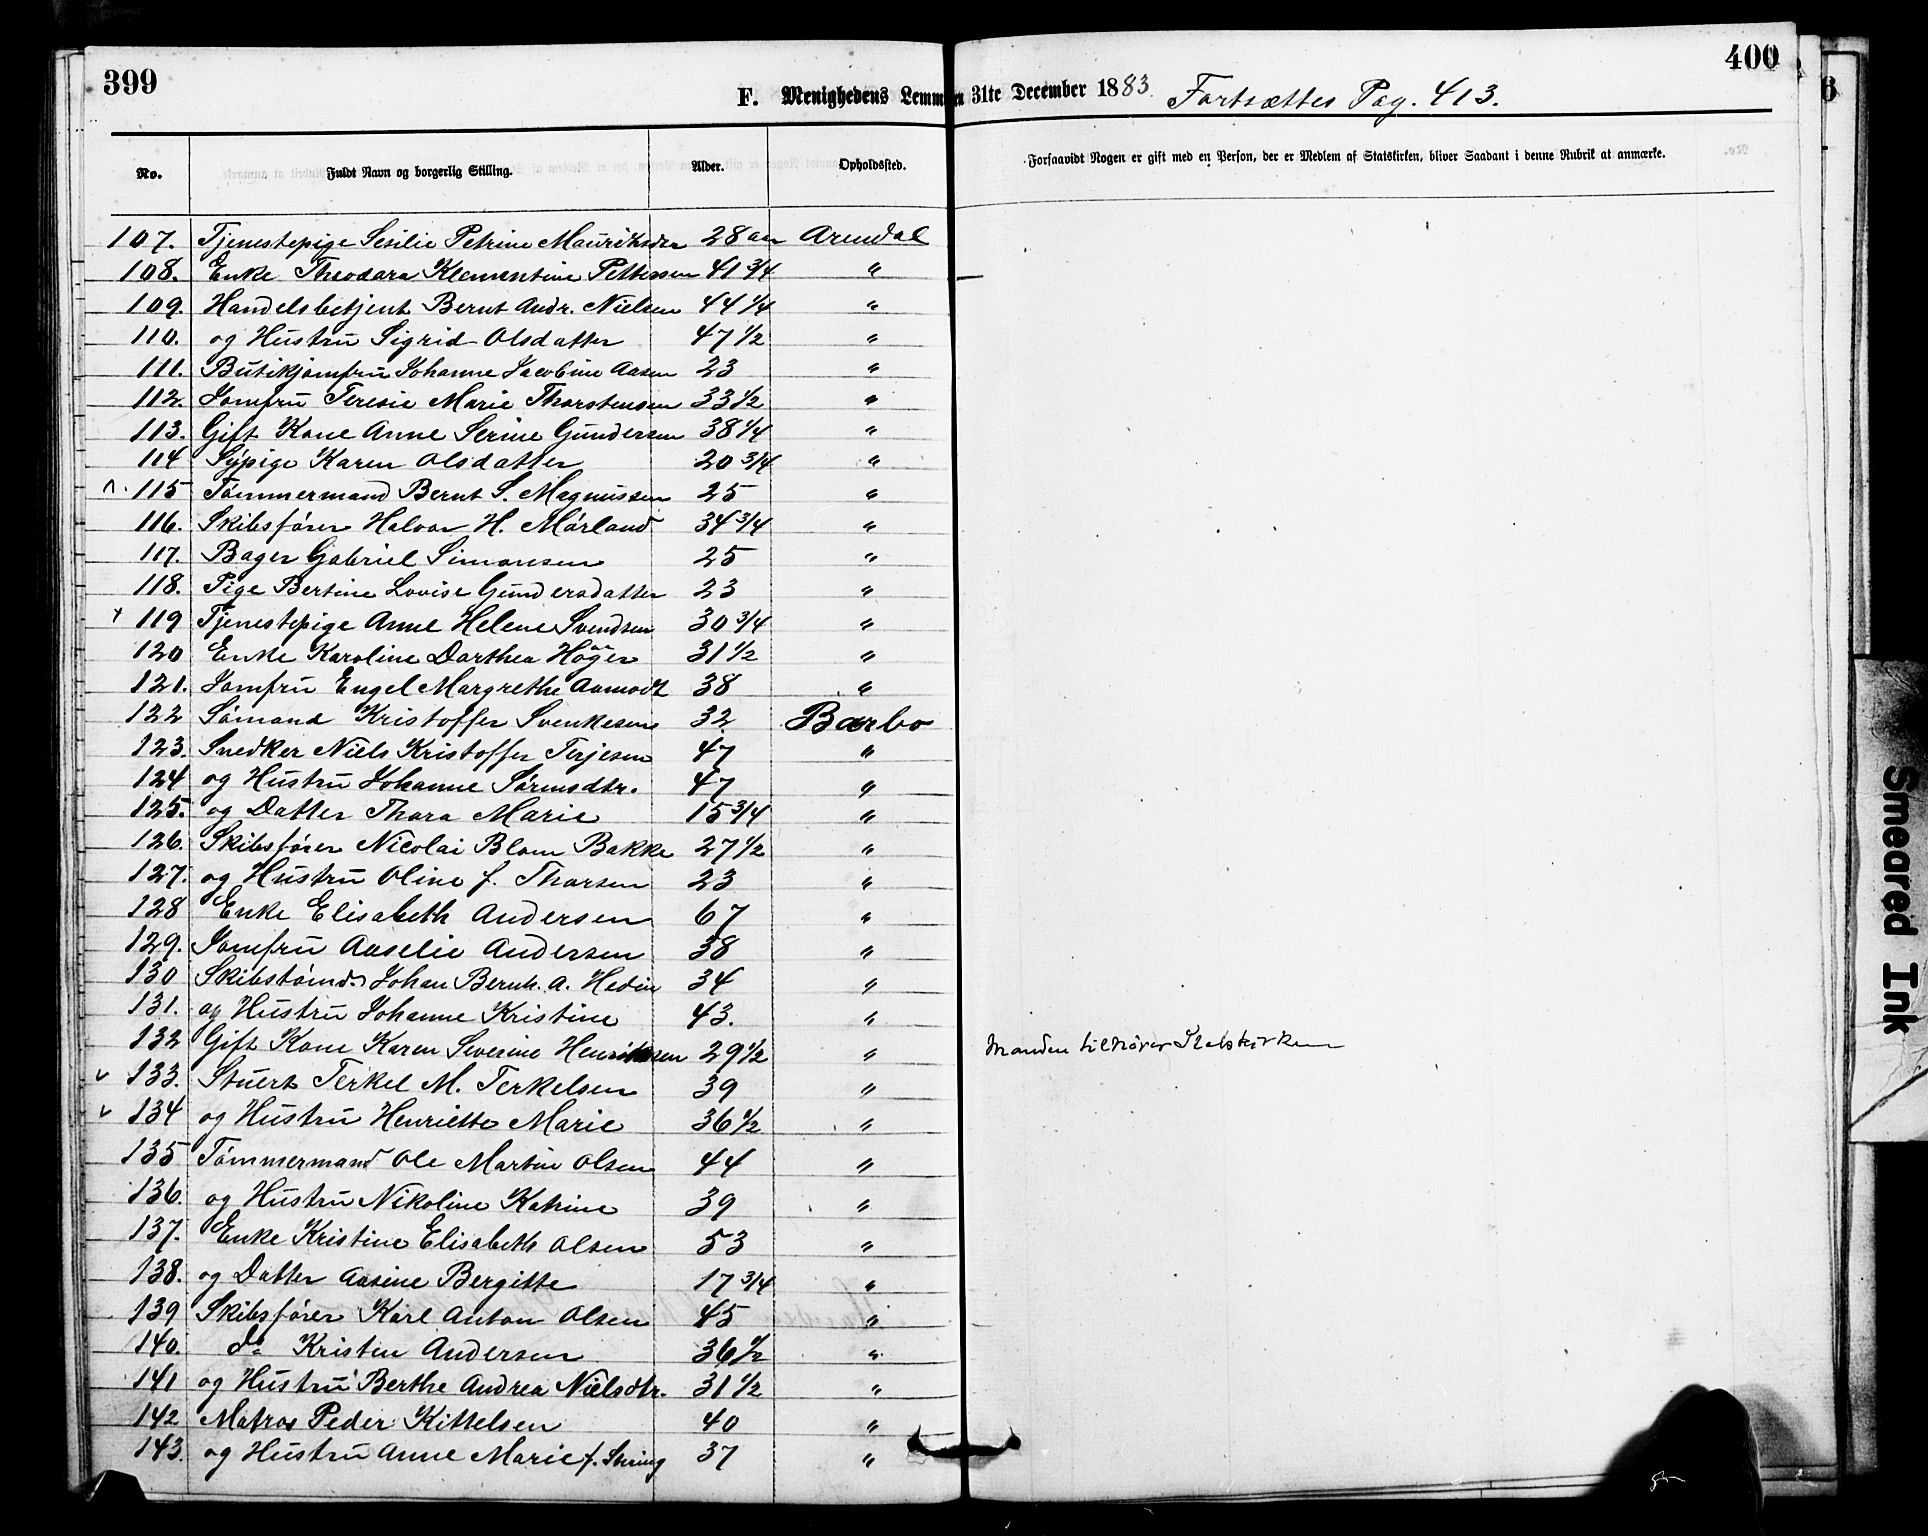 399
400
F. Menighedens Lemmer 31te December 1883. Fortsættes Pag. 413.
No. Fuldt Navn og borgerlig Stilling. Alder. Opholdssted. Forsaavidt Nogen er gift med en Person, der er Medlem af Statskirken, bliver Saadant i denne Rubrik at anmærke.
107. Tjenestepige Sesilie Petrine 28 aar Arendal
108. Enke Theodara Klementine Pettersen 41 3/4 "
109. Handelsbetjent Bernt Andr. Nielsen 44 1/4 "
110. og Hustru Sigrid Olsdatter 47 1/2 "
111. Butikjomfru Johanne Jacobine Aasen 23 "
112. Jomfru Teresie Marie Thorstensen 33 1/2 "
113. Gift Kone Anne Serine Gundersen 38 1/4 "
114 Sypige Karen Olsdatter 20 3/4 "
115 Tømmermand Bernt S. Magnussen 25 "
116. Skibsfører Halvor H. Mørland 34 3/4 "
117. Bager Gabriel Simonsen 25 "
118. Pige Bertine Lovise Gundersdatter 23 "
+ 119 Tjenestepige Anne Helene Svendsen 30 3/4 "
120 Enke Karoline Dorthea Höyer 31 1/2 "
121. Jomfru Engel Margrethe Aamodt 38 "
122 Sømand Kristoffer Svenkesen 32. Barbo
123. Snedker Niels Kristoffer Terjesen 47 "
124 og Hustru Johanne Sørensdtr. 47 "
125. og Datter Thora Marie 15 3/4 "
126. Skibsfører Nicolai Blom Bakke 27 1/2 "
127. og Hustru Oline f. Thorsen 23 "
128 Enke Elisabeth Andersen 67 "
129. Jomfru Aaselie Andersen 38 "
130 Skibstømd. Johan Bernh. A. Hedin 34 "
131. og Hustru Johanne Kristine 43. "
132 Gift Kone Karen Severine Henriksen 29 1/2 " Manden tilhører Statskirken
v 133. Stuert Terkel M. Terkelsen 39 "
v 134 og Hustru Henriette Marie 36 1/2 "
135 Tømmermand Ole Martin Olsen 44 "
136. og Hustru Nikoline Katrine 39 "
137. Enke Kristine Elisabeth Olsen 53 "
138. og Datter Aasine Bergitte 17 3/4 "
139 Skibsfører Karl Anton Olsen 45 "
140. do Kristen Andersen 36 1/2 "
141 og Hustru Berthe Andrea Nielsdtr. 31 1/2 "
142 Matros Peder Kittelsen 40 "
143. og Hustru Anne Marie f. 37 "
Smeared Ink
6